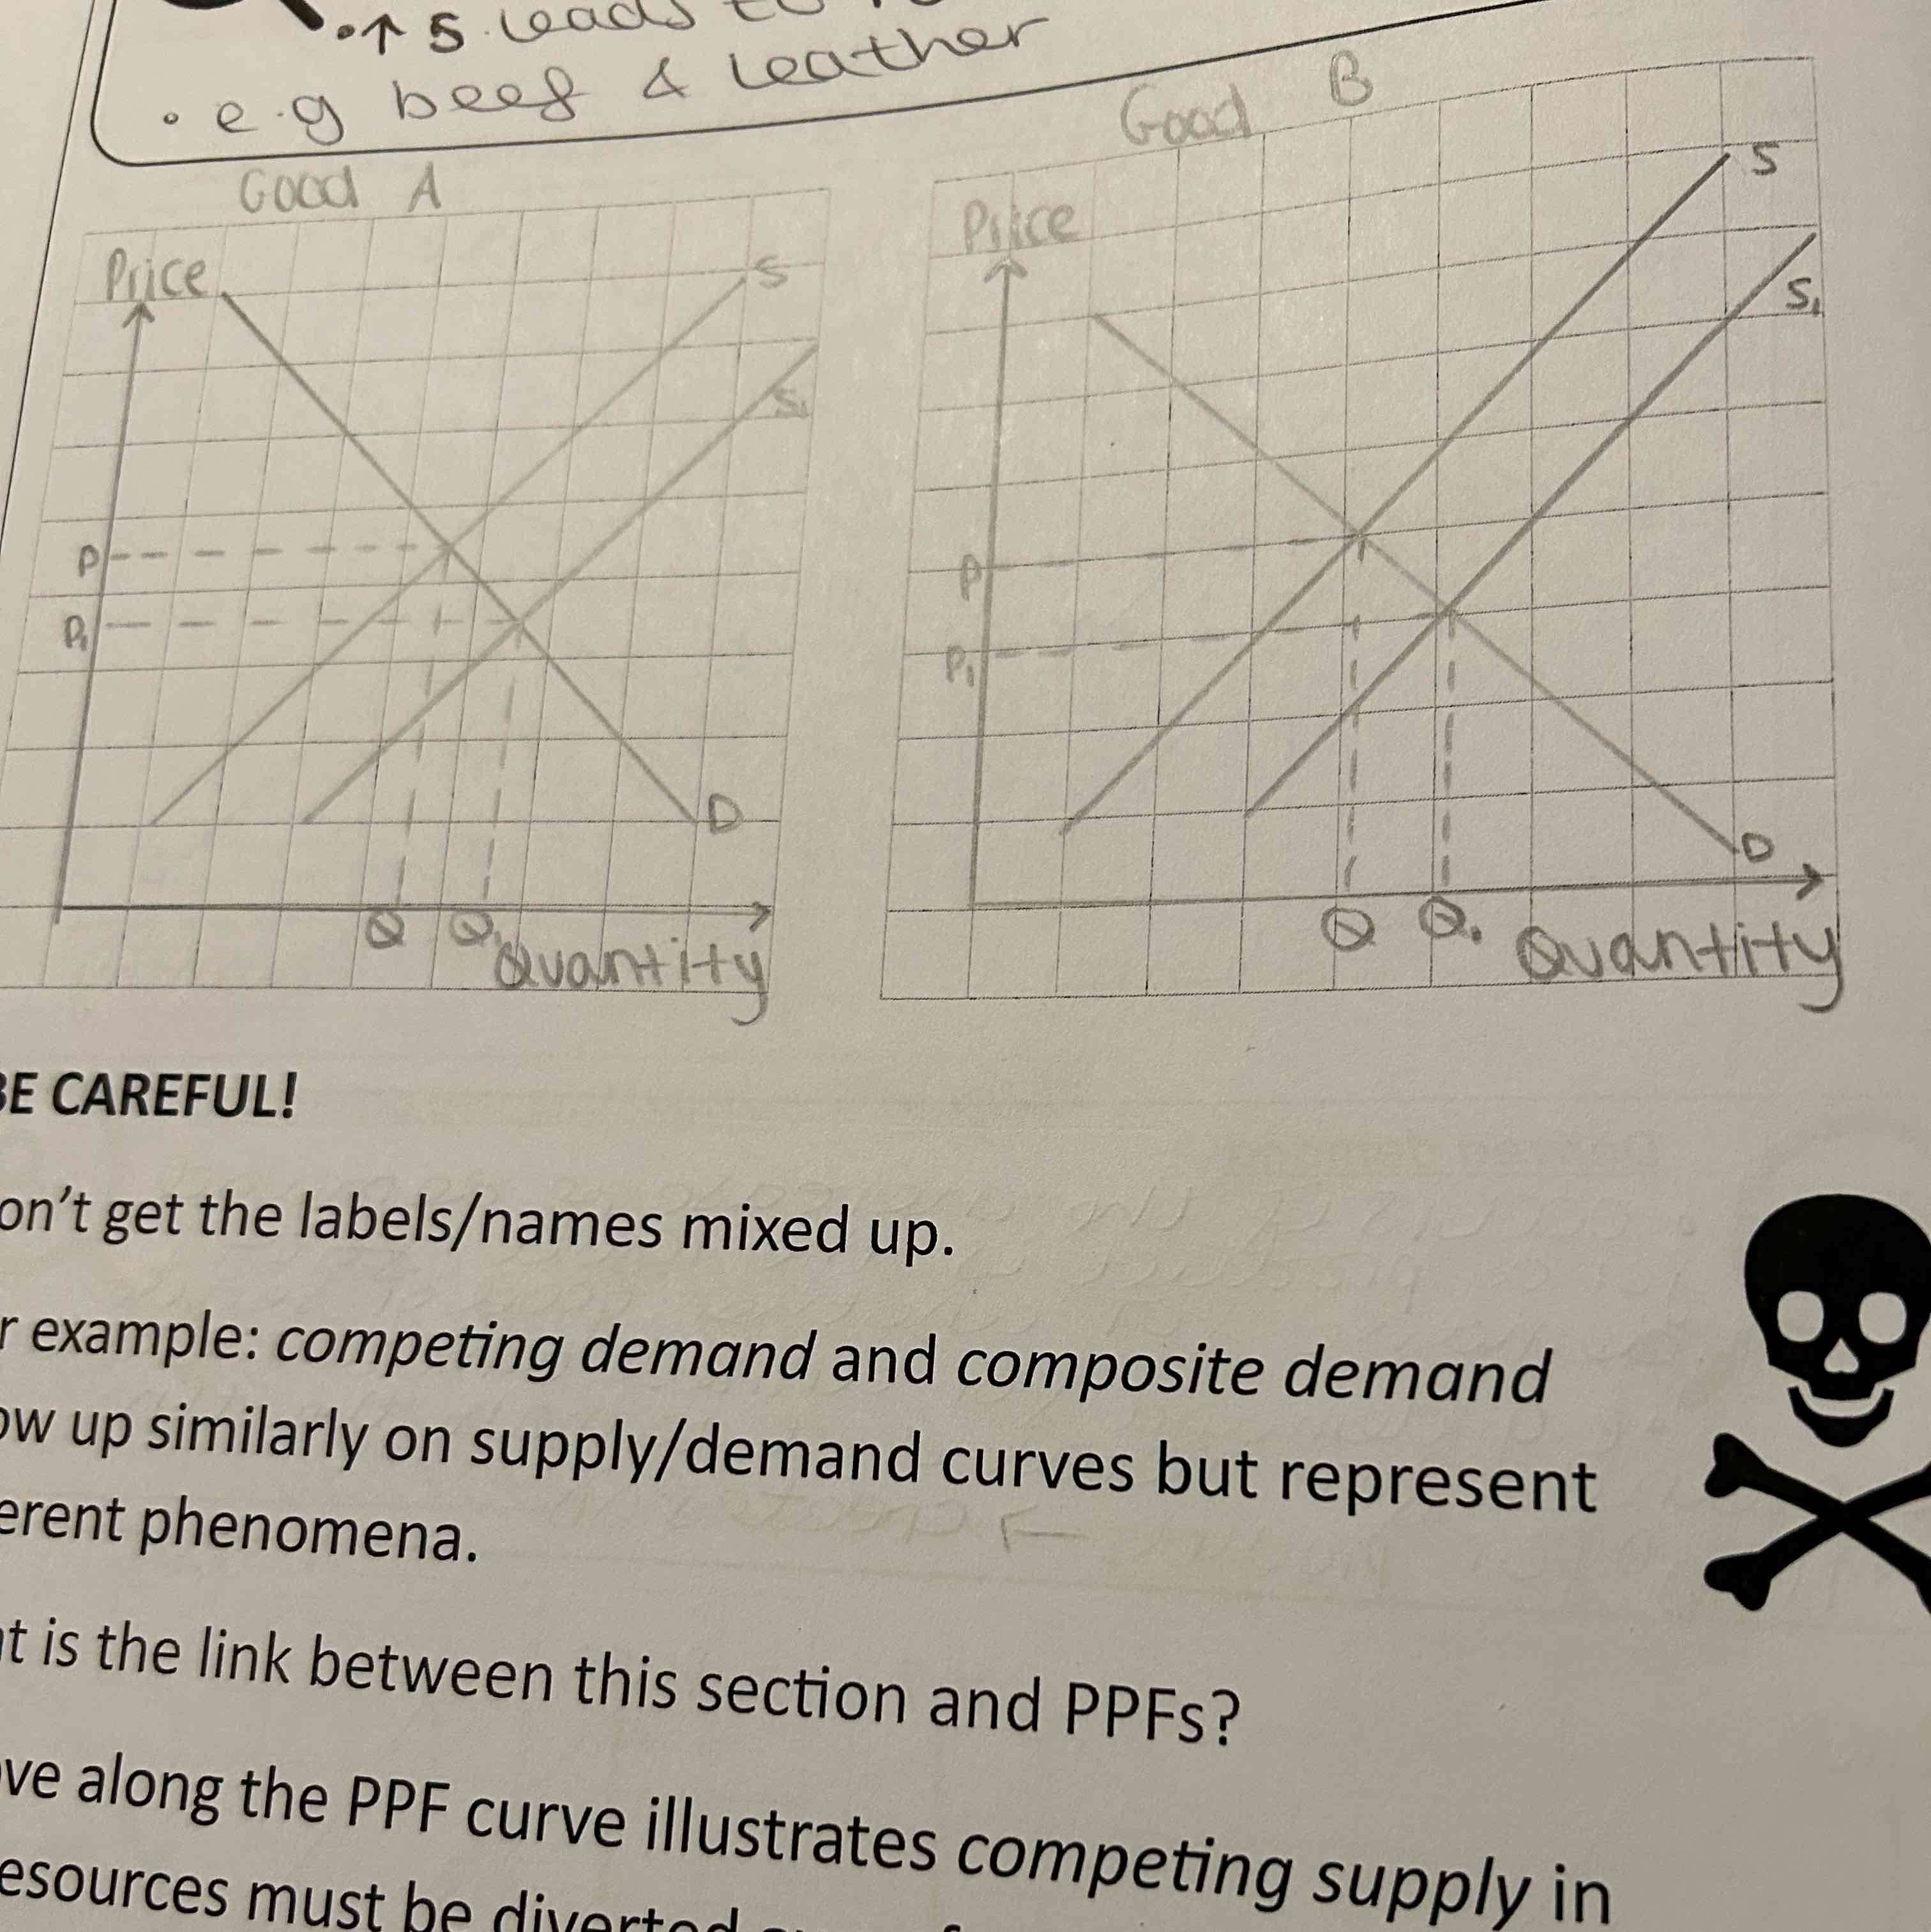 •↑ S leads to
• e.g beef & leather
Good A
Good B
Price
S
S₁
P
P₁
D
Q Q₁
Quantity
Price
S
S₁
P
P₁
D
Q Q₁
Quantity
BE CAREFUL!
on't get the labels/names mixed up.
r example: competing demand and composite demand
ow up similarly on supply/demand curves but represent
erent phenomena.
t is the link between this section and PPFs?
ve along the PPF curve illustrates competing supply in
esources must be diverted